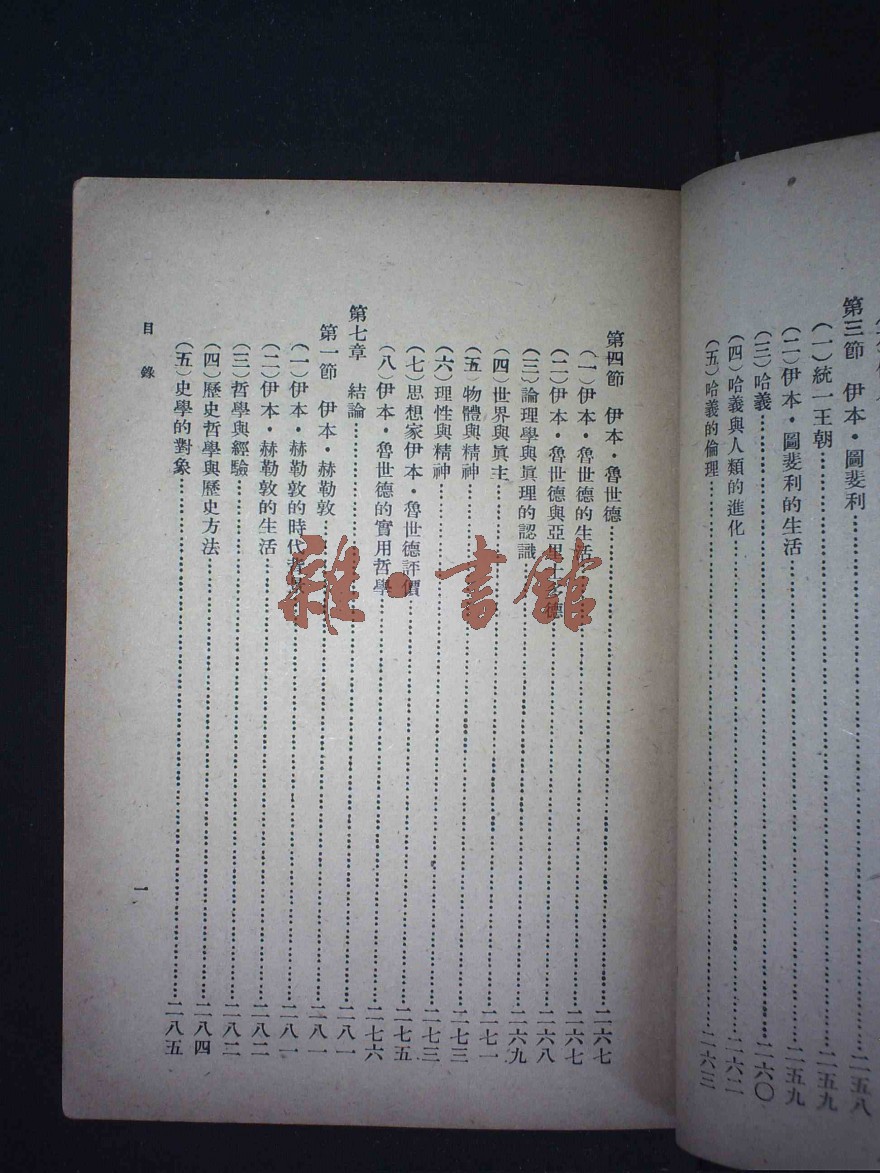 第三節 伊本·圖斐利……二五八
(一)統一王朝……二五九
(二)伊本·圖斐利的生活……二五九
(三)哈義……二六〇
(四)哈義與人類的進化……二六二
(五)哈義的倫理……二六三
第四節 伊本·魯世德……二六七
(一)伊本·魯世德的生活……二六七
(二)伊本·魯世德與亞里士多德……二六八
(三)論理學與眞理的認識……二六九
(四)世界與眞主……二七一
(五)物體與精神……二七三
(六)理性與精神……二七三
(七)思想家伊本·魯世德評價……二七五
(八)伊本·魯世德的實用哲學……二七六
第七章 結論……二八一
第一節 伊本·赫勒敦……二八一
(一)伊本·赫勒敦的時代……二八一
(二)伊本·赫勒敦的生活……二八二
(三)哲學與經驗……二八二
(四)歷史哲學與歷史方法……二八四
(五)史學的對象……二八五
目錄
一
雜·書館